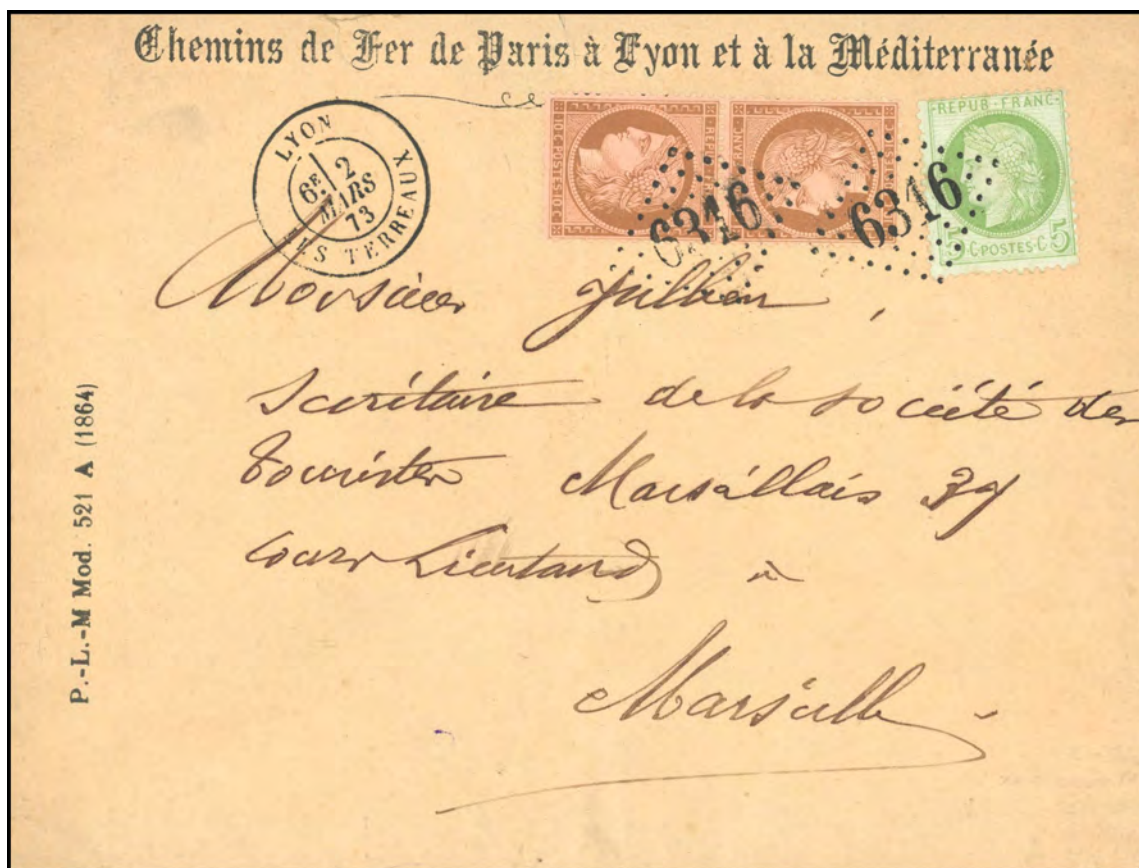 Chemins de Fer de Paris à Lyon et à la Méditerranée
LYON
6E 2
MARS
73
LES TERREAUX
REPUB·FRANC·
6316
6316
5·C·POSTES·C·5
Monsieur Jullien,
Secrétaire de la société des
Touristes Marséllais 39
cours Lieutaud à
Marseille
P.-L.-M Mod. 521 A (1864)